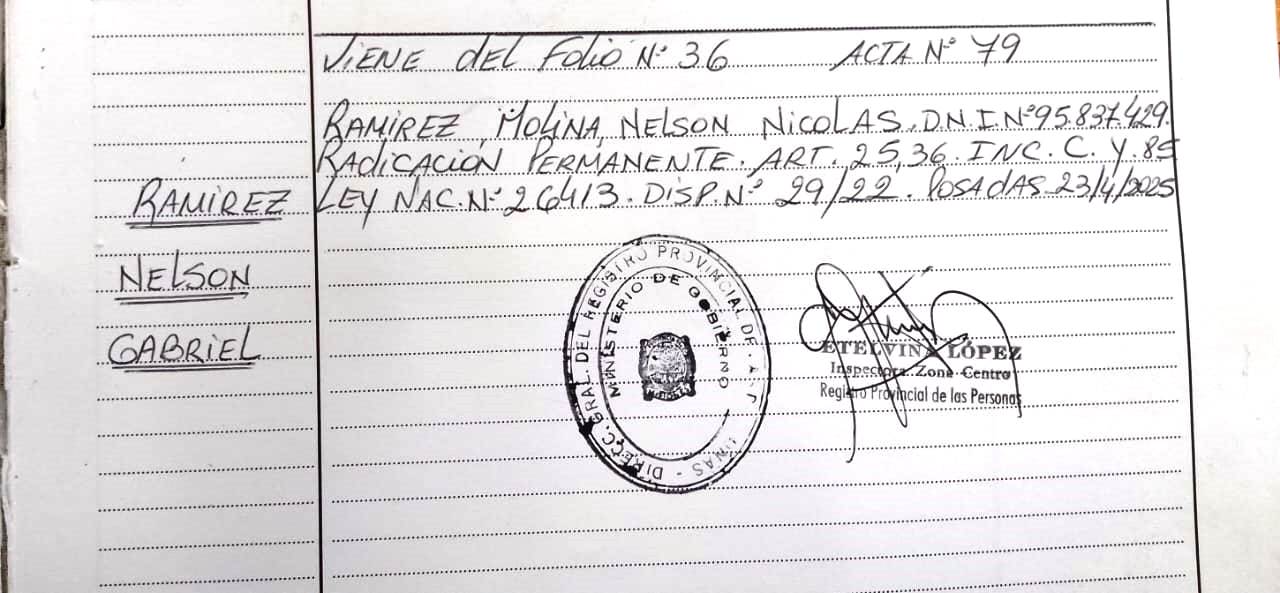 VIENE del Folio Nº 36 ACTA Nº 79
RAMIREZ MOLINA, NELSON NICOLAS. D.N.I. Nº 95.837.429.
RADICACIÓN PERMANENTE. ART. 25,36. INC. C. Y. 85
LEY NAC. Nº 26413. DISP. Nº 29/22. POSADAS 23/4/2025
RAMIREZ
NELSON
GABRIEL
DIRECC. GRAL. DEL REGISTRO PROVINCIAL DE
MINISTERIO DE GOBIERNO
ETELVINA LÓPEZ
Inspectora Zona Centro
Registro Provincial de las Personas